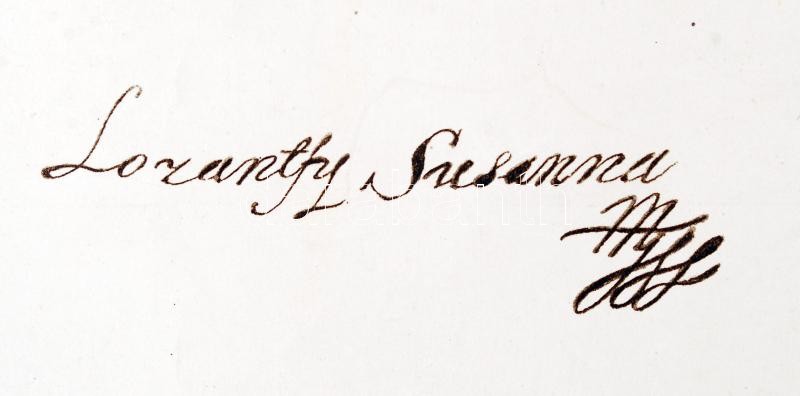 Lorantfy Susanna